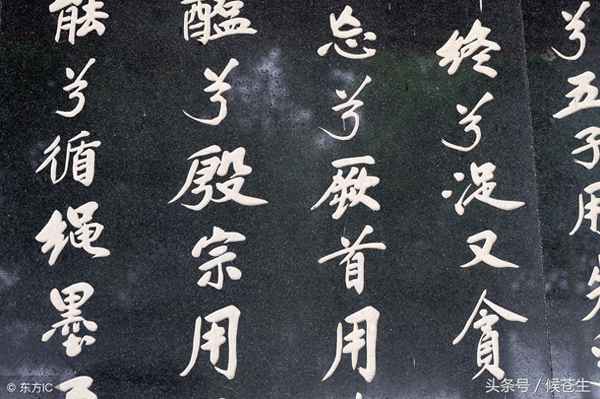 兮五子用失
终兮浞又贪
忘兮厥首用
醢兮殷宗用
能兮循绳墨
© 东方IC
头条号 / 候苍生